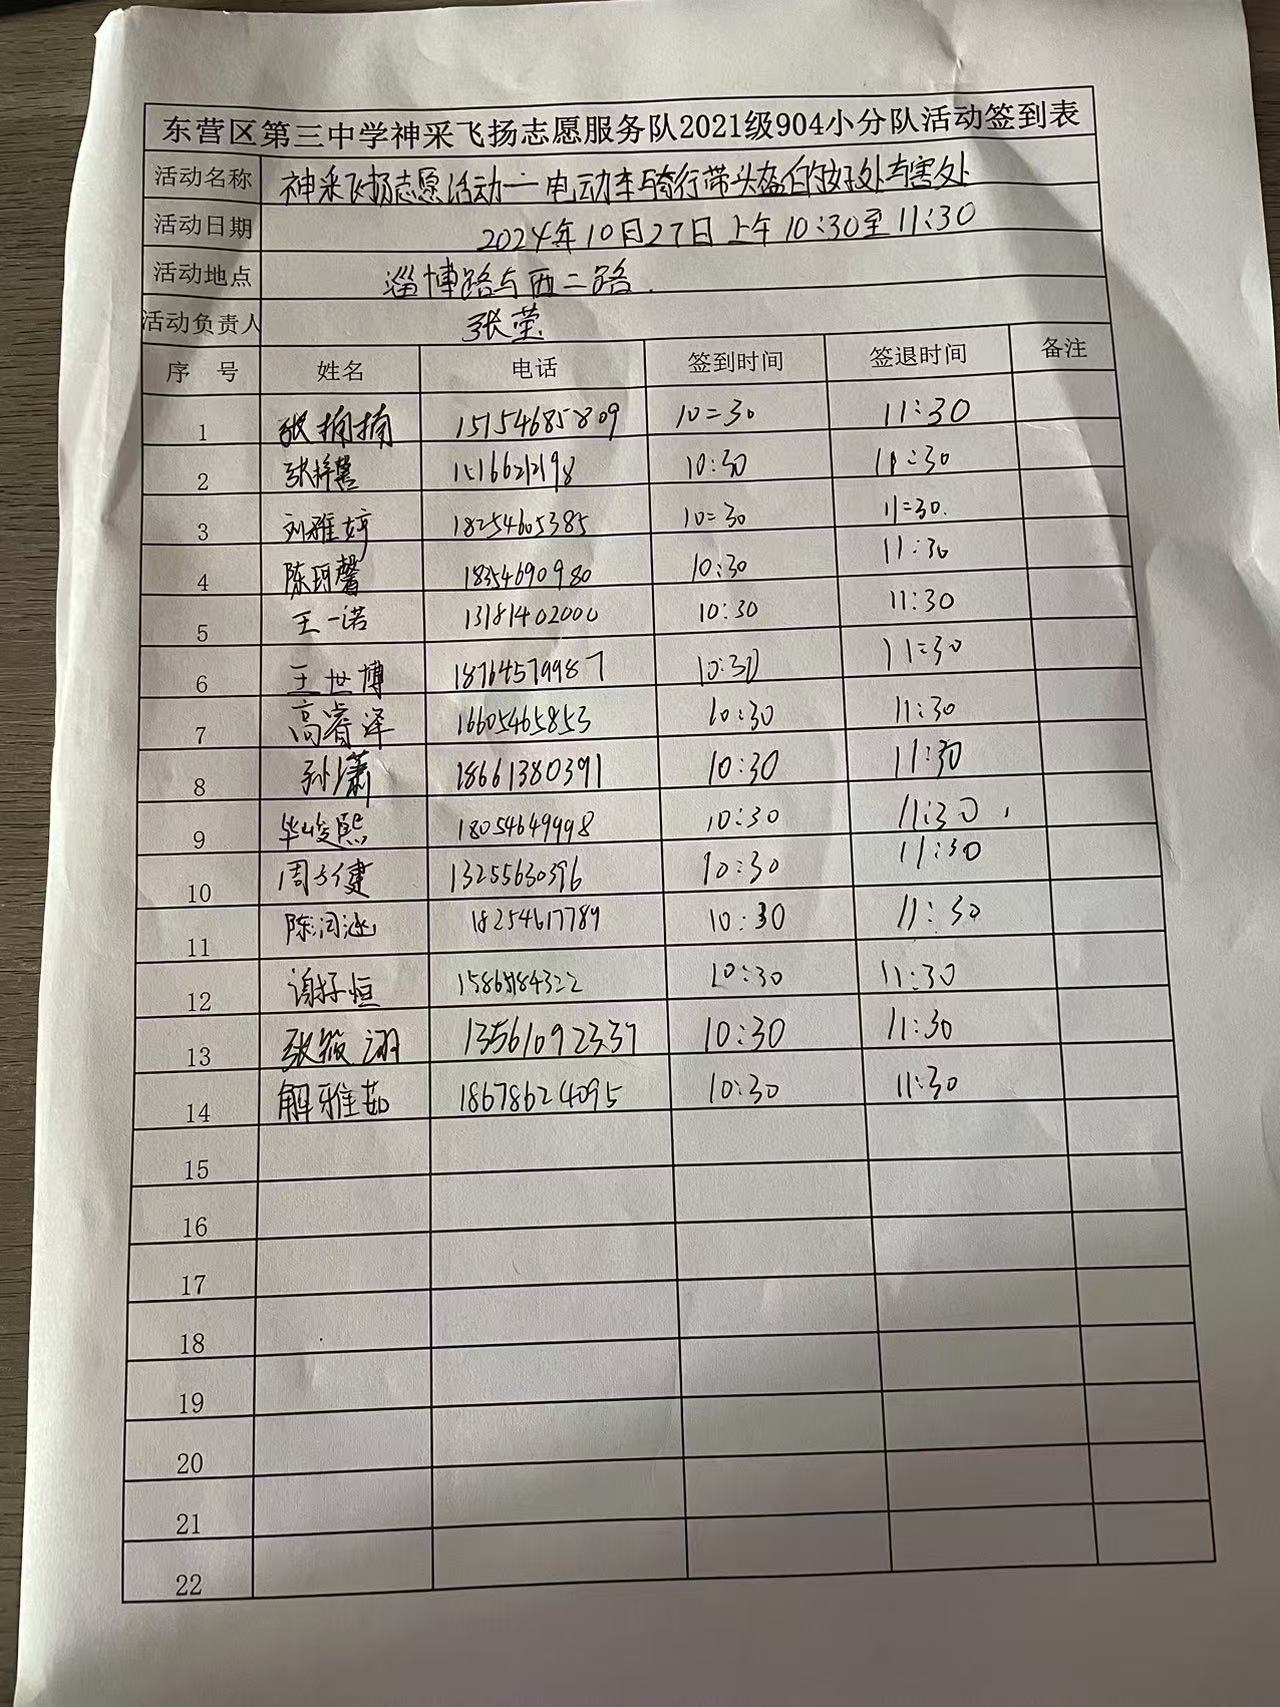 东营区第三中学神采飞扬志愿服务队2021级904小分队活动签到表
活动名称 神采飞扬志愿活动一电动车与骑行带头盔的好处与害处
活动日期 2024年10月27日上午10:30至11:30
活动地点 淄博路与西二路.
活动负责人 张莹
序 号 姓名 电话 签到时间 签退时间 备注
1 张楠楠 15154685809 10=30 11:30
2 10:30 11:30
3 刘雅婷 18254605385 10=30 11=30.
4 陈珂馨 18354690980 10:30 11:30
5 王一诺 13181402000 10:30 11:30
6 王世博 18764579987 10:30 11=30
7 高睿泽 16605465853 10:30 11:30
8 孙潇 18661380391 10:30 11:30
9 毕峻熙 18054649998 10:30 11:30
10 13255630396 10:30 11:30
11 陈润涵 18254617789 10:30 11:30
12 10:30 11:30
13 张筱翊 13561092337 10:30 11:30
14 解雅茹 18678624095 10:30 11:30
15
16
17
18
19
20
21
22